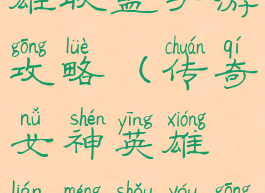 雄联盟手游
gōng lüè chuán qí
攻略（传奇
nǚ shén yīng xióng
女神英雄
lián méng shǒu yóu gōng